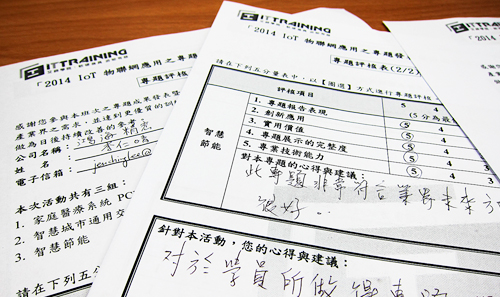 ITTRAINING
「2014 IoT 物聯網應用之專題
專題評核
感謝您參與本次之專題成果發表暨
產業界之需求，並達到更優質的訓
做為日後持續改善的參考
公司名稱：
姓 名
電子信箱：
本次活動共有三組：
1. 家庭醫療系統 PC
2. 智慧城市通用交
3. 智慧節能
請在下列五分量
ITTRAINING
「2014 IoT 物聯網應用之專題發
專題評核表(2/2)
請在下列五分量表中，以【圈選】方式進行專題評核
評核項目
5 4
(5 分為最
智慧
節能
1. 專題報告表現 5 4
2. 創新應用 5 4
3. 實用價值 5 4
4. 專題展示的完整度 5 4
5. 專業技術能力 5 4 3
對本專題的心得與建議：
此專題非常符合業界未來方
很好...
針對本活動，您的心得與建議：
對於學員所做